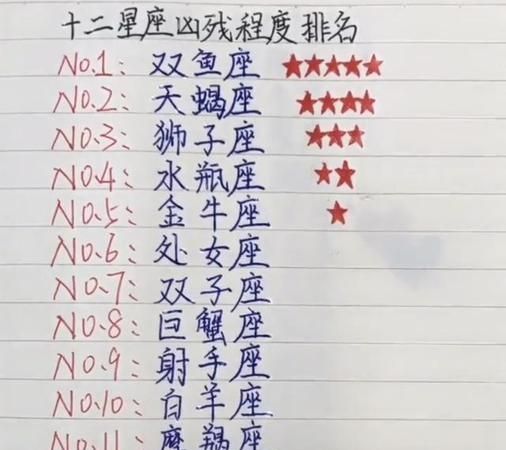 十二星座凶残程度排名
No.1: 双鱼座 ★★★★★
No.2: 天蝎座 ★★★★
No.3: 狮子座 ★★★
No.4: 水瓶座 ★★
No.5: 金牛座 ★
No.6: 处女座
No.7: 双子座
No.8: 巨蟹座
No.9: 射手座
No.10: 白羊座
No.11: 摩羯座